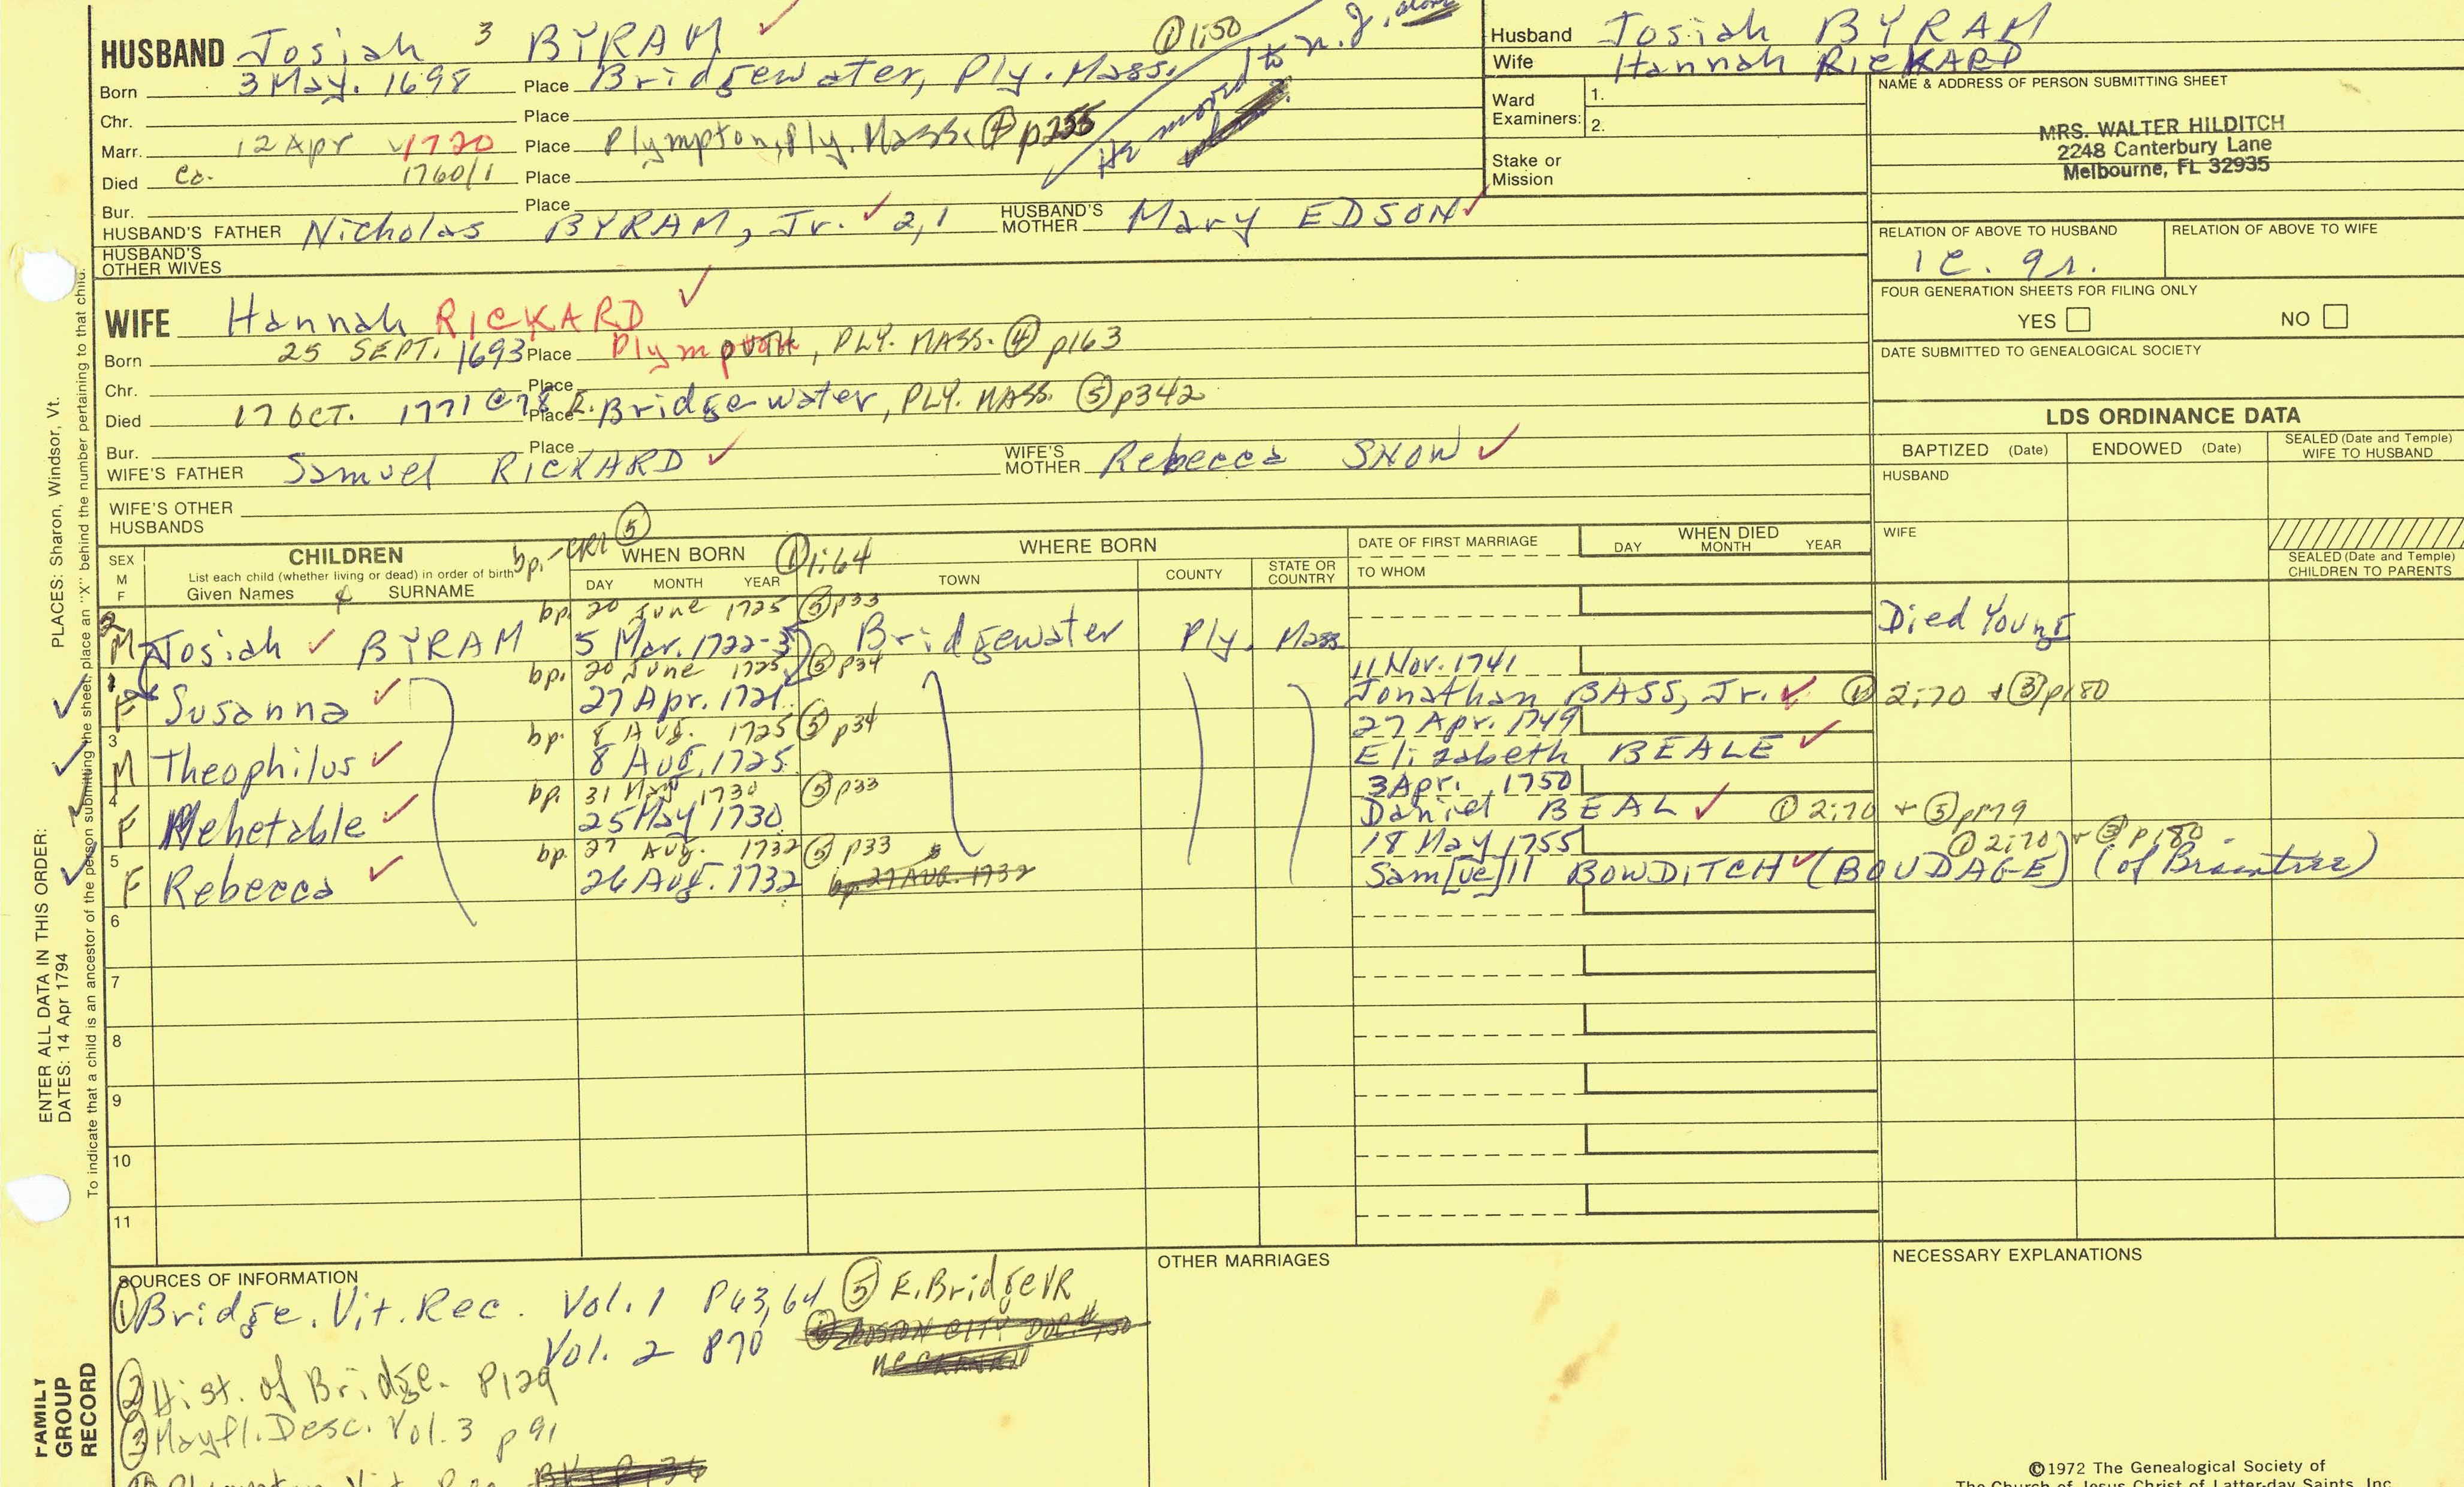 HUSBAND Josiah 3 BYRAM ✓
① 1:50
Born 3 May. 1698 Place Bridgewater, Ply. Mass.
He moved to N.J. alone
Chr. Place
Marr. 12 Apr 1720 Place Plympton, Ply. Mass. ④ p255
Died Ca. 1760/1 Place
Bur. Place
HUSBAND'S FATHER Nicholas BYRAM, Jr. ✓ 2,1 HUSBAND'S MOTHER Mary EDSON ✓
HUSBAND'S OTHER WIVES
WIFE Hannah RICKARD ✓
Born 25 SEPT. 1693 Place , PLY. MASS. ④ p163
Chr. Place
Died 17 OCT. 1771 @ 78 Place E. Bridgewater, PLY. MASS. ⑤ p342
Bur. Place
WIFE'S FATHER Samuel RICKARD ✓ WIFE'S MOTHER Rebecca SNOW ✓
WIFE'S OTHER HUSBANDS
Husband Josiah BYRAM
Wife Hannah RICKARD
Ward Examiners: 1.
2.
Stake or Mission
NAME & ADDRESS OF PERSON SUBMITTING SHEET
MRS. WALTER HILDITCH
2248 Canterbury Lane
Melbourne, FL 32935
RELATION OF ABOVE TO HUSBAND RELATION OF ABOVE TO WIFE
1c. 9r.
FOUR GENERATION SHEETS FOR FILING ONLY
YES NO
DATE SUBMITTED TO GENEALOGICAL SOCIETY
LDS ORDINANCE DATA
BAPTIZED (Date) ENDOWED (Date) SEALED (Date and Temple) WIFE TO HUSBAND
HUSBAND
WIFE
SEALED (Date and Temple) CHILDREN TO PARENTS
SEX M F
CHILDREN
List each child (whether living or dead) in order of birth
Given Names SURNAME
bp.-CR1 ⑤
WHEN BORN ① 1:64
DAY MONTH YEAR
WHERE BORN
TOWN COUNTY STATE OR COUNTRY
DATE OF FIRST MARRIAGE
TO WHOM
WHEN DIED
DAY MONTH YEAR
bp. 20 June 1725 ⑤ p33
2 M Josiah ✓ BYRAM 5 Mar. 1722-3 Bridgewater Ply. Mass. Died Young
bp. 20 June 1725 ⑤ p34 11 Nov. 1741
1 F Susanna ✓ 27 Apr. 1721 Jonathan BASS, Jr. ✓ ① 2:70 + ③ p180
bp. 8 Aug. 1725 ⑤ p34 27 Apr. 1749
3 M Theophilus ✓ 8 Aug. 1725 Elizabeth BEALE ✓
bp. 31 May 1730 ⑤ p33 3 Apr. 1750
4 F Mehetable ✓ 25 May 1730 Daniel BEAL ✓ ① 2:70 + ⑤ p179
bp. 27 Aug. 1732 ⑤ p33 18 May 1755 ① 2:70 + ③ p180
5 F Rebecca ✓ 26 Aug. 1732 bp. 27 AUG. 1732 Sam[ue]ll BOWDITCH ✓ (BOUDAGE) (of Braintree)
6
7
8
9
10
11
SOURCES OF INFORMATION
① Bridge. Vit. Rec. Vol. 1 P63,64 ⑤ E. Bridge VR
Vol. 2 P70 BOSTON CITY DOC. #130
② Hist. of Bridge. P129
③ Mayfl. Desc. Vol. 3 p 91
Plympton Vit. Rec.
OTHER MARRIAGES
NECESSARY EXPLANATIONS
©1972 The Genealogical Society of
The Church of Jesus Christ of Latter-day Saints, Inc.
PLACES: Sharon, Windsor, Vt.
To indicate that a child is an ancestor of the person submitting the sheet, place an "X" behind the number pertaining to that child.
ENTER ALL DATA IN THIS ORDER:
DATES: 14 Apr 1794
FAMILY GROUP RECORD